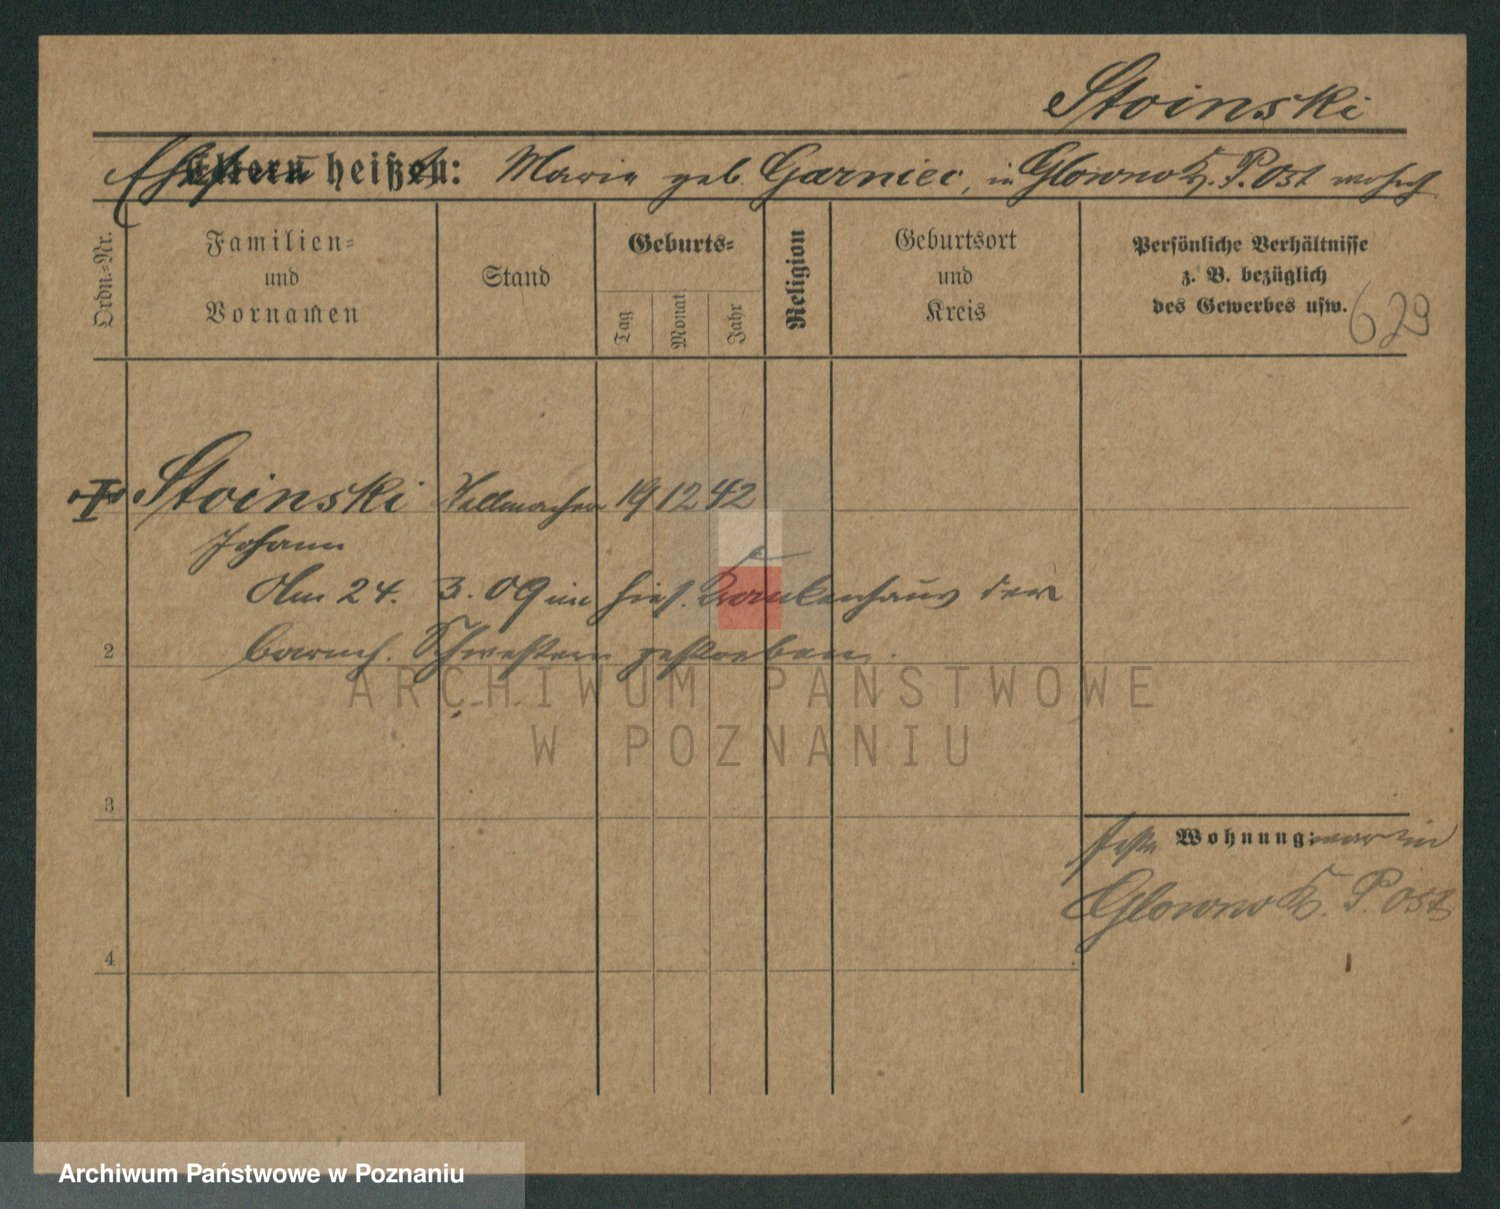 Stoinski
Ehefrau
Eltern heißen: Maria geb. Garniec, in Glowno K. P. Ost wohnh
Ordn.=Nr.
Familien=
und
Vornamen
Stand
Geburts=
Tag
Monat
Jahr
Religion
Geburtsort
und
Kreis
Persönliche Verhältnisse
z. B. bezüglich
des Gewerbes usw.
629
I Stoinski Stellmacher 19 12 42
Johann
Am 24. 3. 09 im hies. Krankenhaus der
2 barmh. Schwestern gestorben.
ARCHIWUM PAŃSTWOWE
W POZNANIU
3
feste Wohnung: war in
Glowno K. P. Ost
4
Archiwum Państwowe w Poznaniu